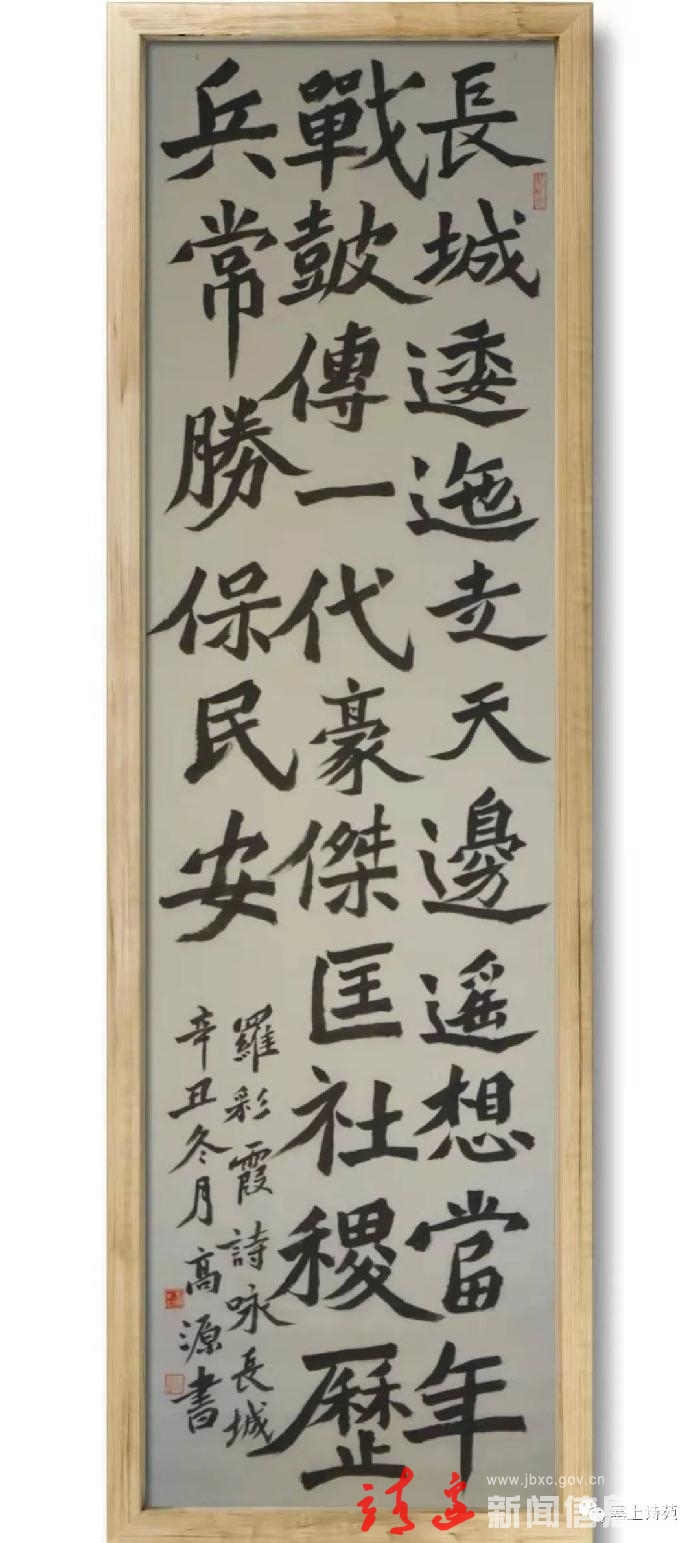 長城逶迤走天邊遥想當年
戰鼓傳一代豪傑匡社稷歷
兵常勝保民安
羅彩霞詩咏長城
辛丑冬月高源書
www.jbxc.gov.cn
靖边
新闻信息
塞上诗苑